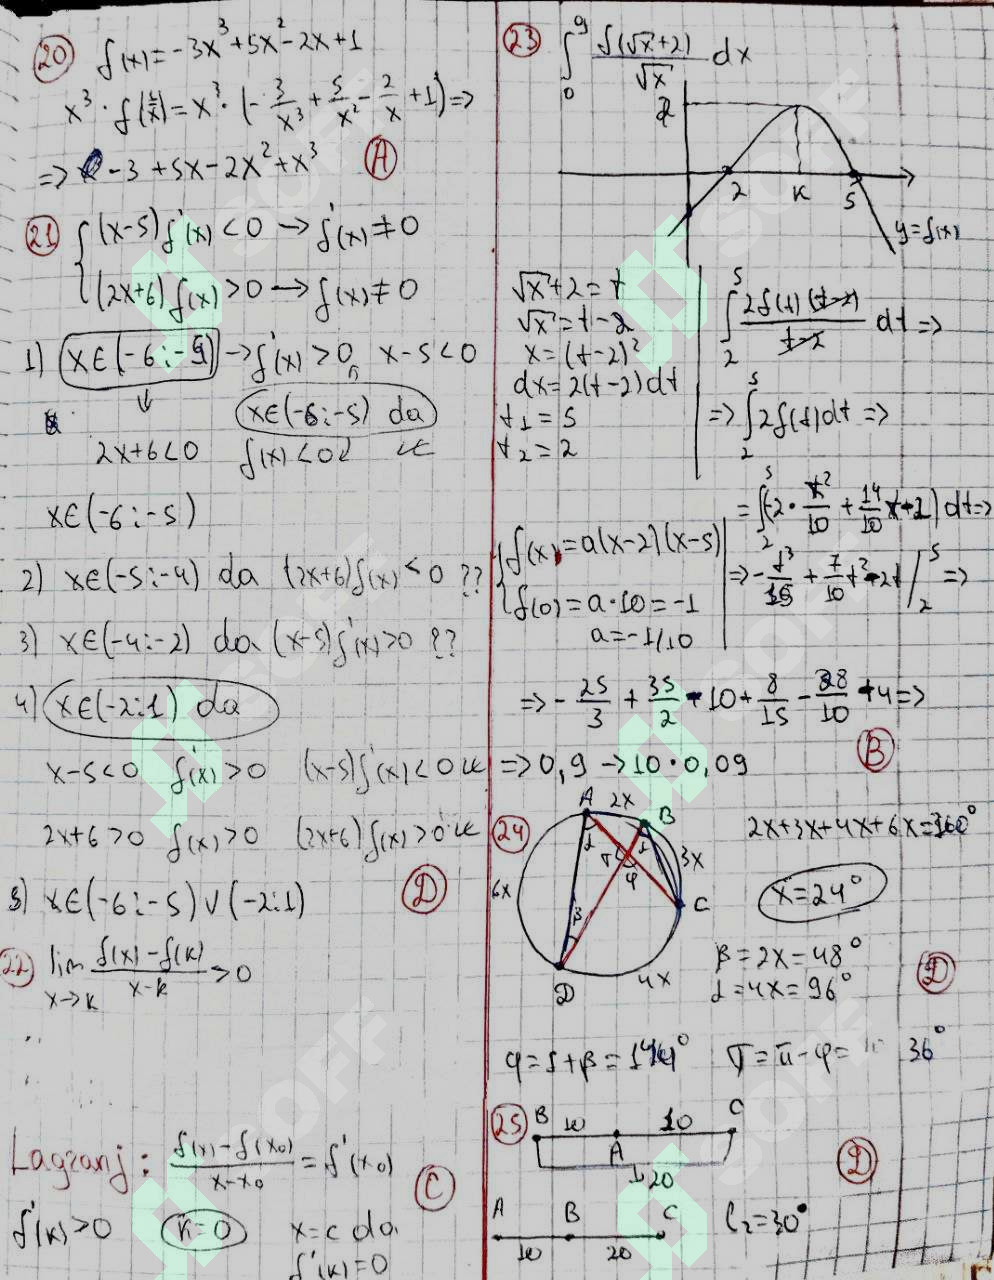 20 f(x)=-3x³+5x²-2x+1
x³·f(1/x)=x³·(-3/x³+5/x²-2/x+1)=>
=> -3+5x-2x²+x³ A
21 {(x-5)f'(x)<0→f'(x)≠0
(2x+6)f(x)>0→f(x)≠0
1) x∈(-6;-5)→f'(x)>0, x-5<0
x∈(-6;-5) da
2x+6<0 f(x)<0
x∈(-6;-5)
2) x∈(-5;-4) da (2x+6)f(x)<0 ??
3) x∈(-4;-2) da (x-5)f'(x)>0 ??
4) x∈(-2;1) da
x-5<0 f'(x)>0 (x-5)f'(x)<0
2x+6>0 f(x)>0 (2x+6)f(x)>0
5) x∈(-6;-5)∨(-2;1) D
22 lim x→k (f(x)-f(k))/(x-k)>0
Lagranj: (f(x)-f(x₀))/(x-x₀)=f'(x₀)
C
f'(k)>0 k=0 x=c da
f'(k)=0
23 ∫₀⁹ f(√x+2)/√x dx
2
2 k 5
y=f(x)
√x+2=t
√x=t-2
x=(t-2)²
dx=2(t-2)dt
t₁=5
t₂=2
∫₂⁵ 2f(t)(t-2)/(t-2) dt=>
=>∫₂⁵ 2f(t)dt=>
=∫₂⁵(-2·t²/10+14/10t-2)dt=>
{f(x)=a(x-2)(x-5)
f(0)=a·10=-1
a=-1/10
=>-t³/15+7/10t²-2t|₂⁵=>
=>-25/3+35/2-10+8/15-28/10+4=>
=>0,9→10·0,09 B
24 A 2x B
3x
C
4x
D
6x
2x+3x+4x+6x=360°
x=24°
β=2x=48°
=4x=96°
D
φ= +β=144° =π-φ= 36°
25 B 10 A 10 C
20
D
A B C
10 20
l₂=30°
SOFF
SOFF
SOFF
SOFF
SOFF
SOFF